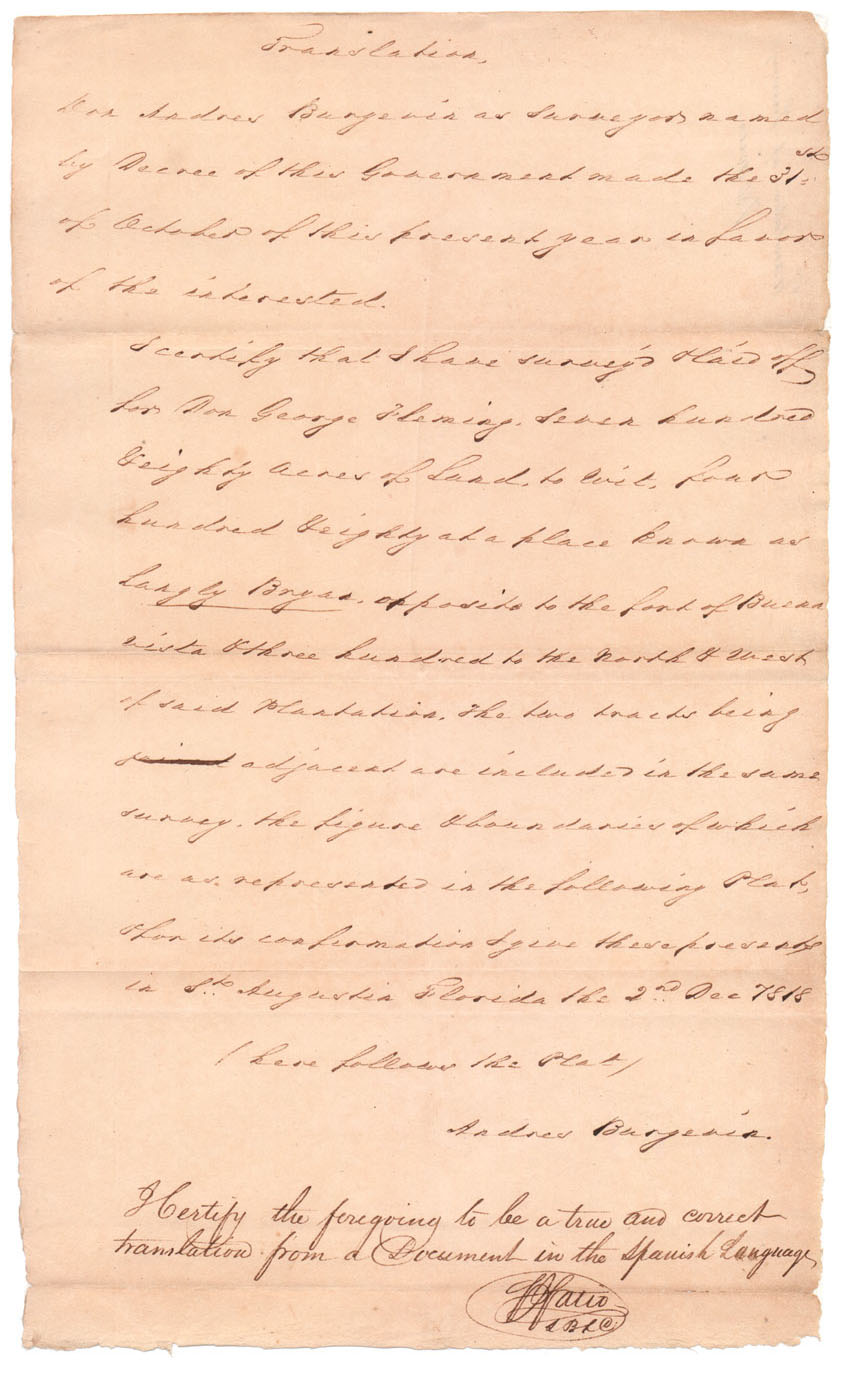 Translation,
Don Andres Burgevin as Surveyor, named
by Decree of this Government made the 31st
of October of this present year in favor
of the interested.
I certify that I have survey'd & laid off
for Don George Fleming, Seven hundred
& eighty acres of Land, to wit, four
hundred & eighty at a place known as
Langly Bryan, opposite to the fort of Buena
vista & three hundred to the North & West
of said Plantation, The two tracts being
adjacent are included in the same
survey, the figure & boundaries of which
are as represented in the following Plat,
& for its confirmation I give these presents
in St. Augustin Florida the 2nd Dec 1818
(here follows the Plat)
Andres Burgevin.
I Certify the foregoing to be a true and correct
translation from a Document in the Spanish Language,